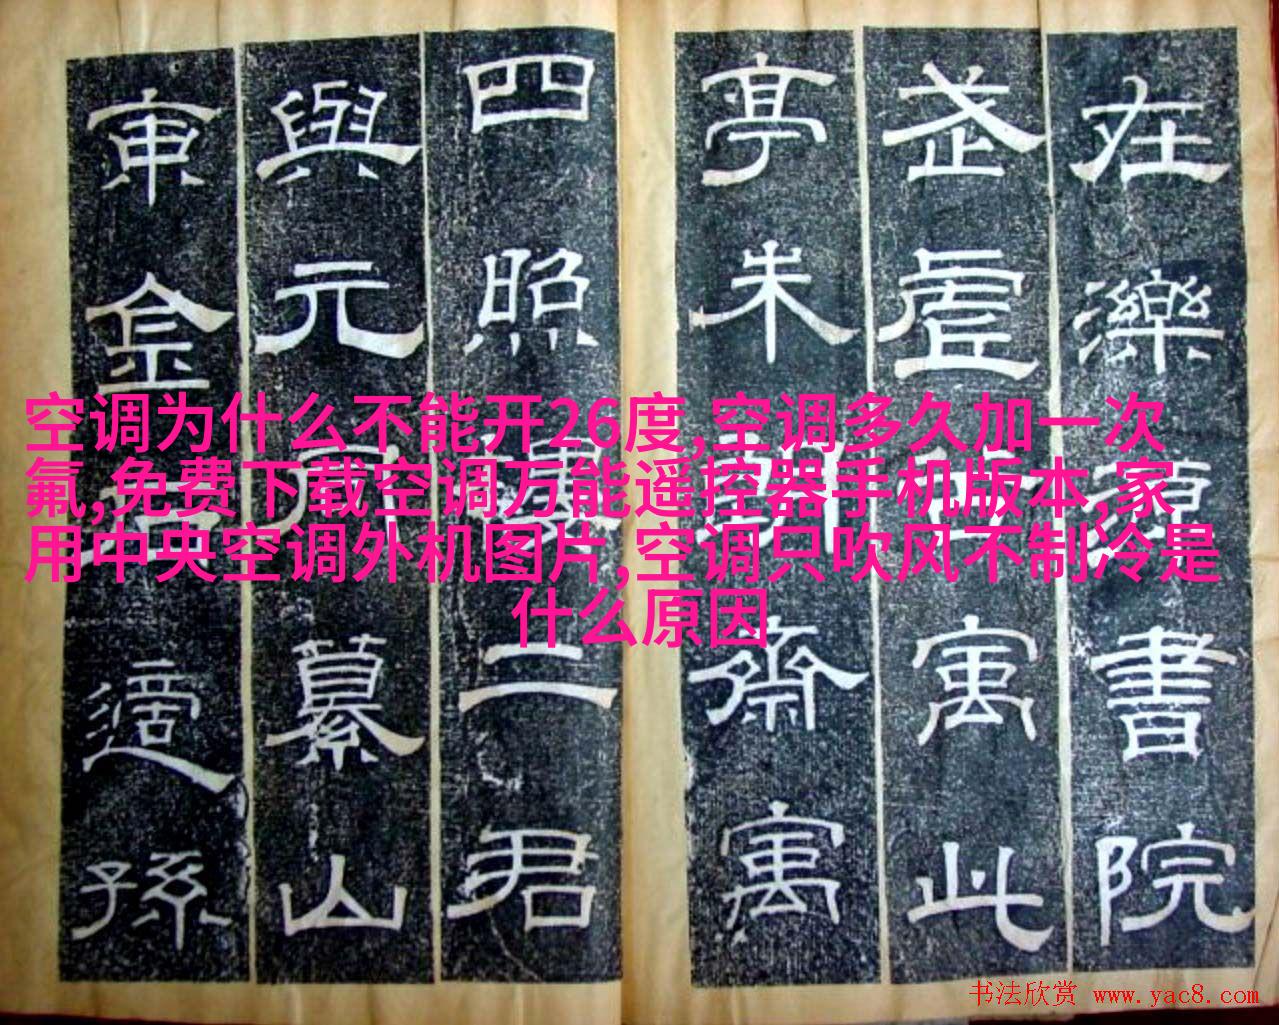 在濼源書院
武虚寓此
亭朱齋寓
四照二君
與元同纂山
東金石適孫
空调为什么不能开26度,空调多久加一次
氟,免费下载空调万能遥控器手机版本,家
用中央空调外机图片,空调只吹风不制冷是
什么原因
书法欣赏 www.yac8.com